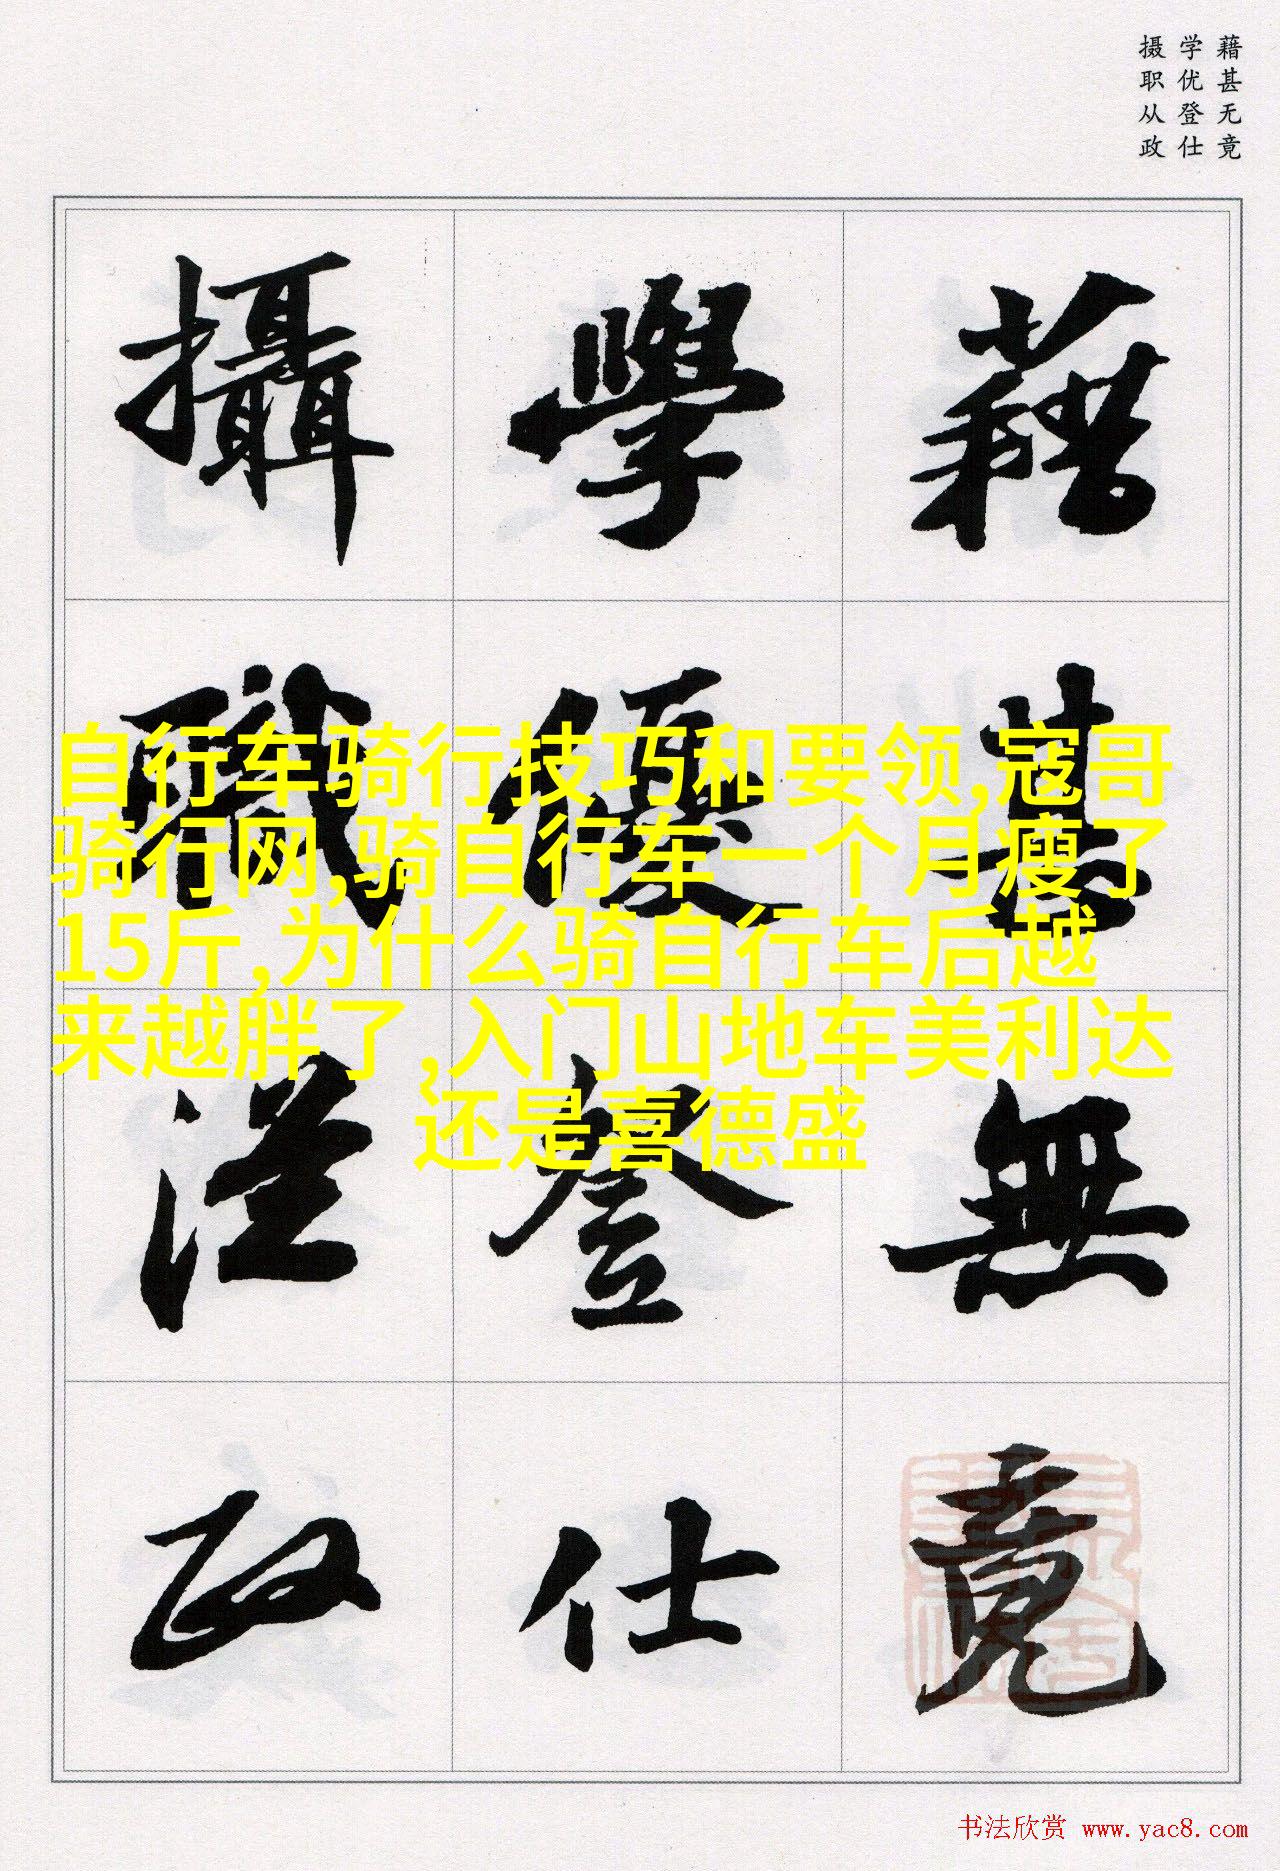 藉甚无竟
学优登仕
摄职从政
藉甚無竟
學優登仕
攝職從政
自行车骑行技巧和要领,寇哥
骑行网,骑自行车一个月瘦了
15斤,为什么骑自行车后越
来越胖了,入门山地车美利达
还是喜德盛
书法欣赏 www.yac8.com